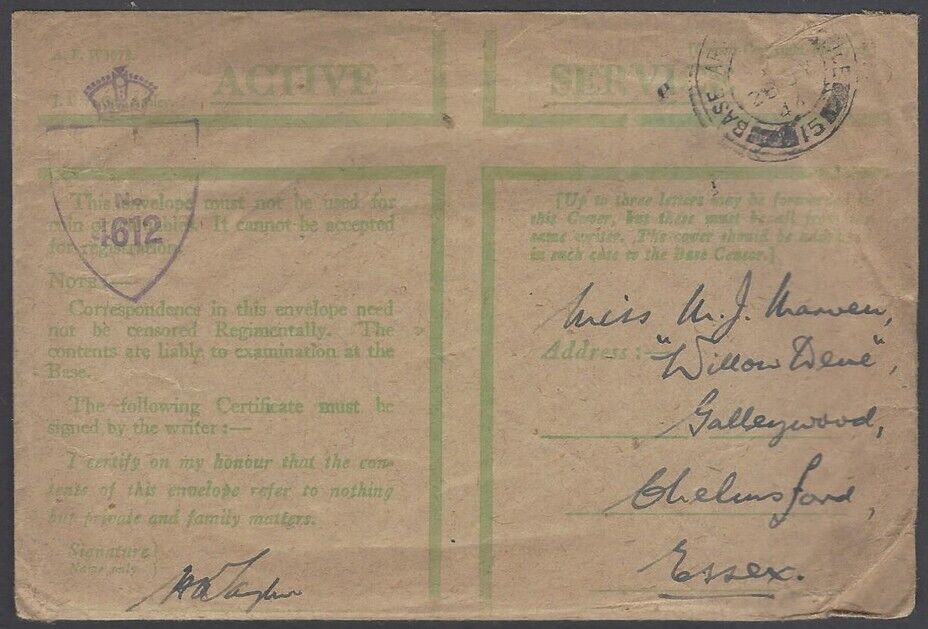 ACTIVE SERVICE
BASE 15
No.
1612
This envelope must not be used for
coin or It cannot be accepted
for registration.
NOTE:—
Correspondence in this envelope need
not be censored Regimentally. The
contents are liable to examination at the
Base.
The following Certificate must be
signed by the writer:—
I certify on my honour that the con-
tents of this envelope refer to nothing
but private and family matters.
Signature
Name only
[Up to three letters may be forwarded in
this Cover, but these must be all from the
same writer. The cover should be addressed
in each case to the Base Censor.]
Address:—
Miss M. J. Marven,
"Willow Dene",
Galleywood,
Chelmsford,
Essex.